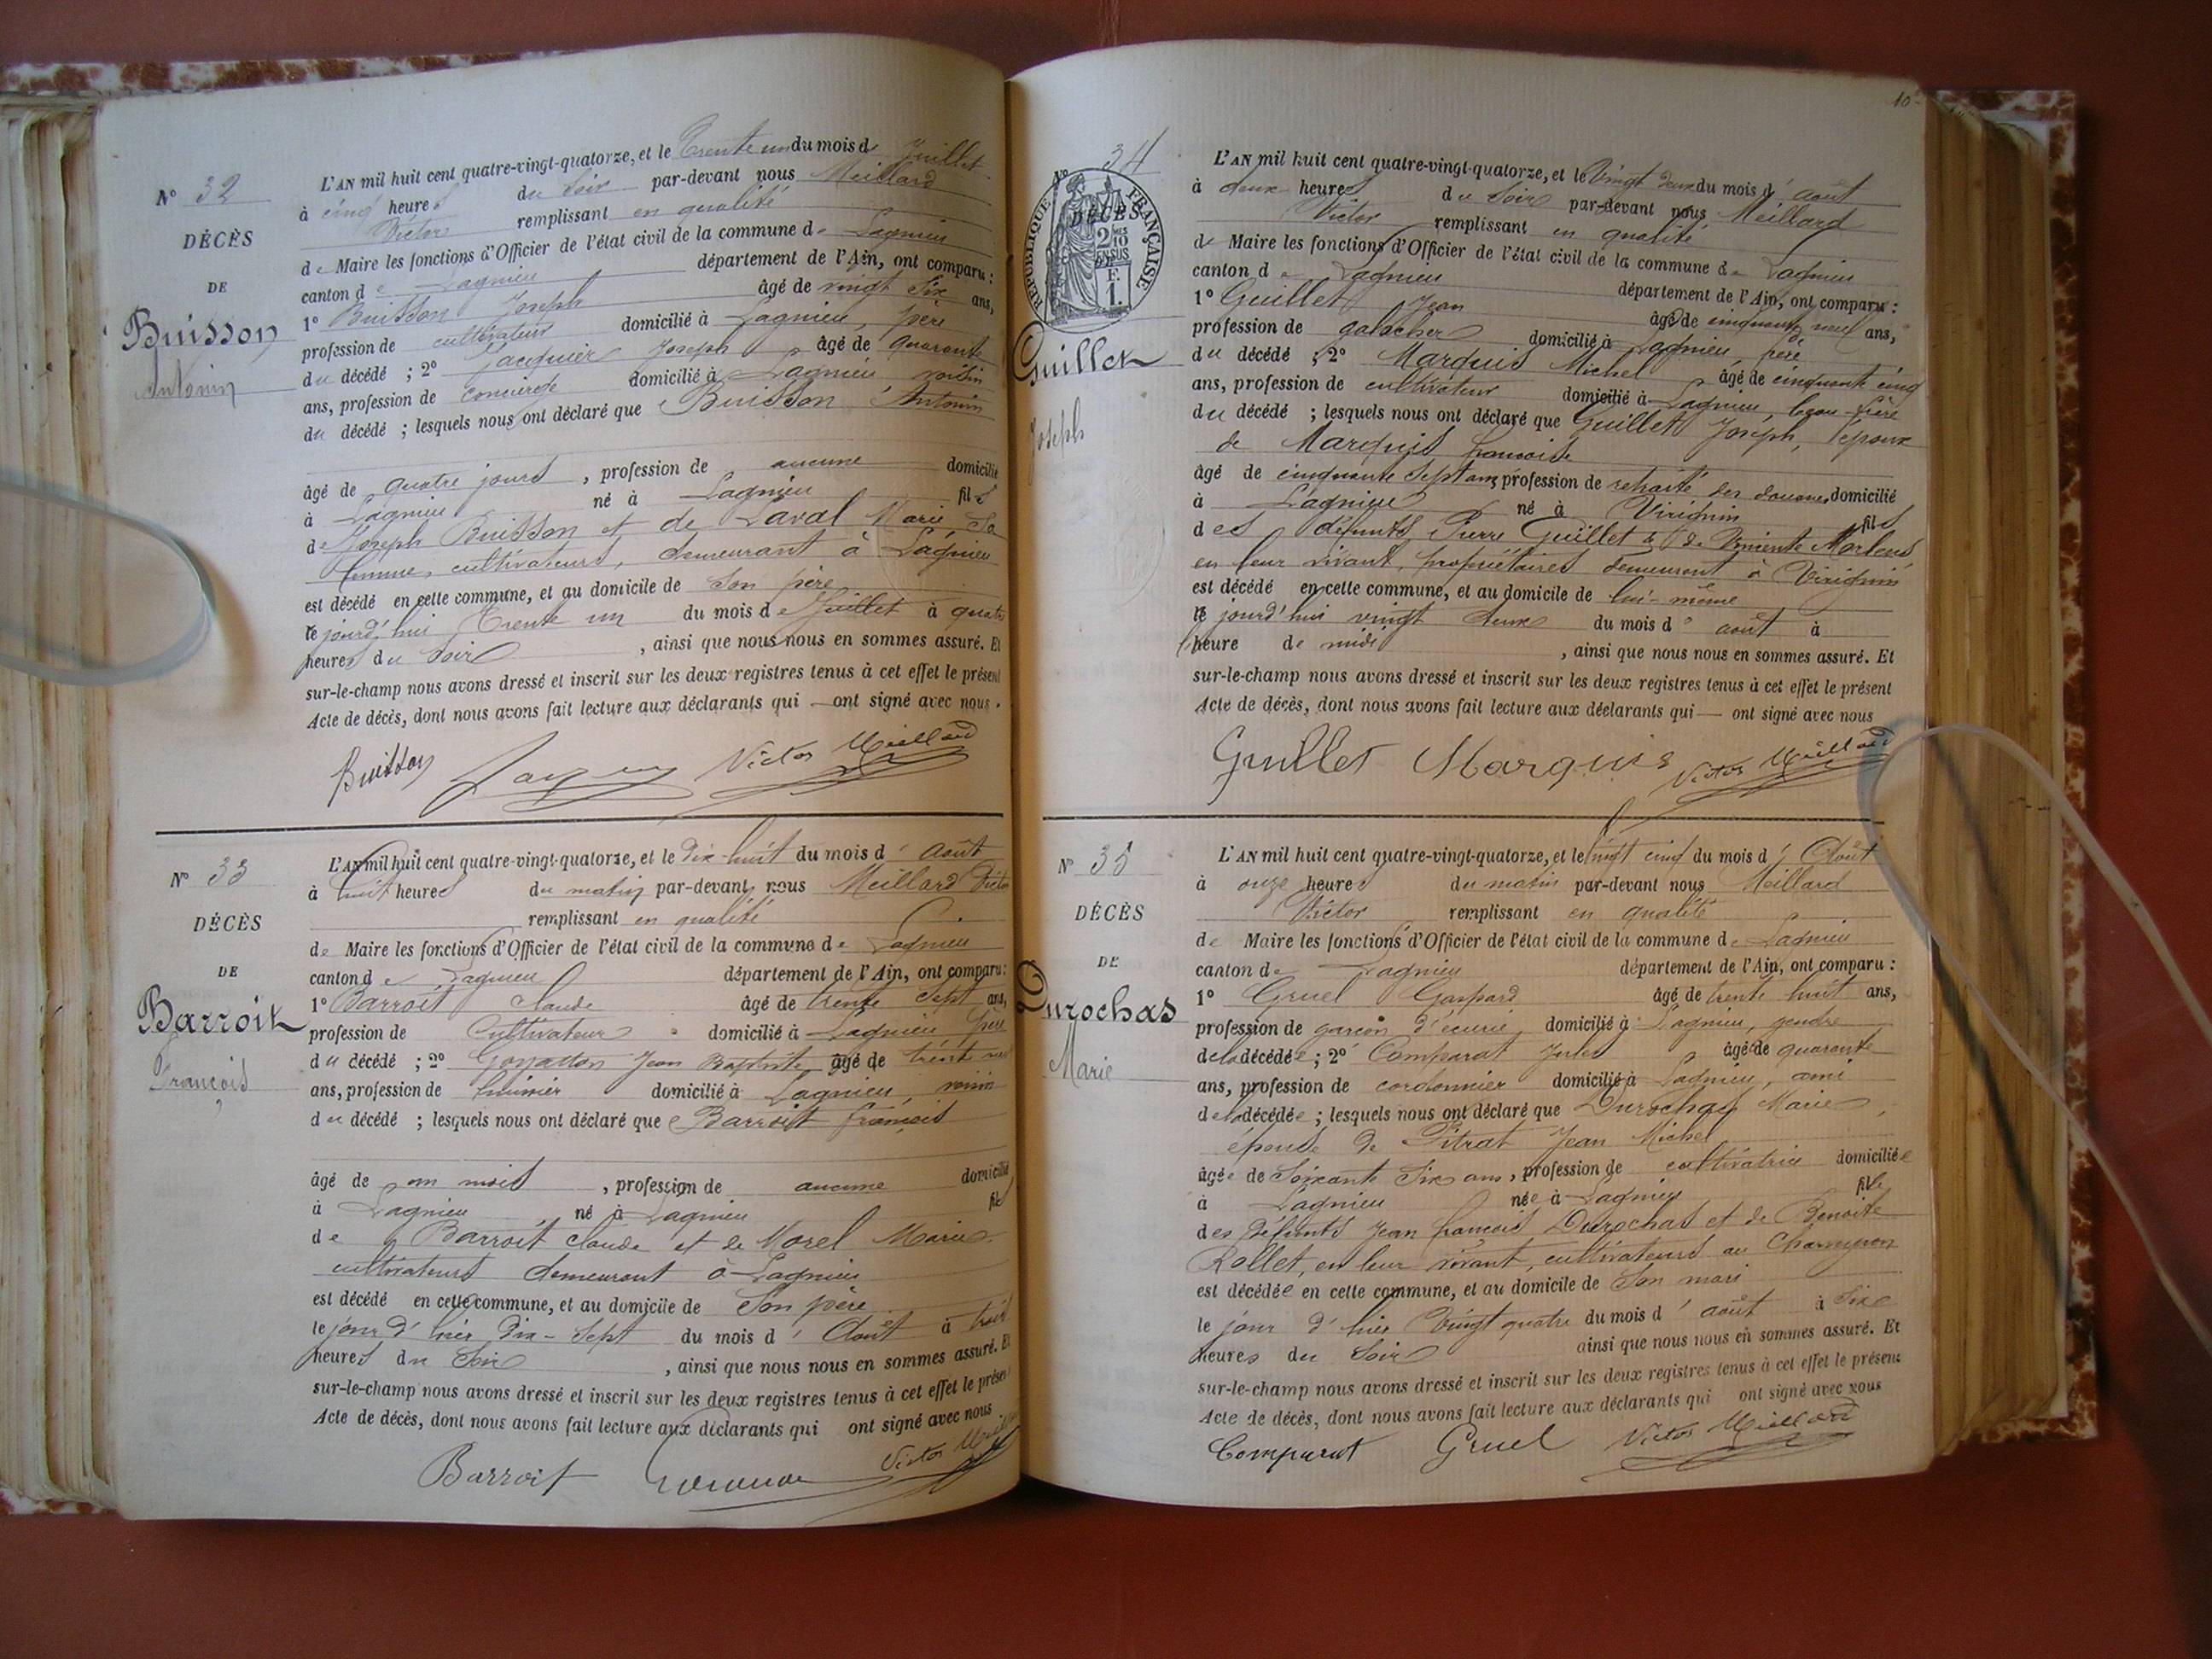 N° 32
DÉCÈS
DE
Buisson
Antonin
L'AN mil huit cent quatre-vingt-quatorze, et le Trente un du mois de Juillet
à cinq heures du soir par-devant nous Meillard
Victor remplissant en qualité
de Maire les fonctions d'Officier de l'état civil de la commune de Lagnieu
canton de Lagnieu département de l'Ain, ont comparu :
1° Buisson Joseph âgé de vingt six ans,
profession de cultivateur domicilié à Lagnieu, père
du décédé ; 2° Jacquier Joseph âgé de quarante
ans, profession de concierge domicilié à Lagnieu voisin
du décédé ; lesquels nous ont déclaré que Buisson Antonin
âgé de quatre jours , profession de aucune domicilié
à Lagnieu né à Lagnieu fils
de Joseph Buisson et de Laval Marie, sa
femme, cultivateurs, demeurant à Lagnieu
est décédé en cette commune, et au domicile de son père
le jourd'hui Trente un du mois de Juillet à quatre
heures du soir , ainsi que nous nous en sommes assuré. Et
sur-le-champ nous avons dressé et inscrit sur les deux registres tenus à cet effet le présent
Acte de décès, dont nous avons fait lecture aux déclarants qui — ont signé avec nous.
Buisson Victor Meillard
N° 33
DÉCÈS
DE
Barroit
François
L'AN mil huit cent quatre-vingt-quatorze, et le dix-huit du mois d' Août
à huit heures du matin par-devant nous Meillard Victor
remplissant en qualité
de Maire les fonctions d'Officier de l'état civil de la commune de Lagnieu
canton de Lagnieu département de l'Ain, ont comparu :
1° Barroit Claude âgé de trente sept ans,
profession de Cultivateur domicilié à Lagnieu père
du décédé ; 2° Jean Baptiste âgé de trente
ans, profession de domicilié à Lagnieu, voisin
du décédé ; lesquels nous ont déclaré que Barroit françois
âgé de un mois , profession de aucune domicilié
à Lagnieu né à Lagnieu fils
de Barroit Claude et de Morel Marie
cultivateurs demeurant à Lagnieu
est décédé en cette commune, et au domicile de son père
le jour d'hier dix-sept du mois d' Août à trois
heures du soir , ainsi que nous nous en sommes assuré. Et
sur-le-champ nous avons dressé et inscrit sur les deux registres tenus à cet effet le présent
Acte de décès, dont nous avons fait lecture aux déclarants qui ont signé avec nous
Barroit Victor Meillard
10
34
RÉPUBLIQUE FRANÇAISE
DÉCÈS
2/10 EN SUS
DE
F. 1.
Guillet
Joseph
L'AN mil huit cent quatre-vingt-quatorze, et le Vingt deux du mois d' août
à deux heures du soir par-devant nous Meillard
Victor remplissant en qualité
de Maire les fonctions d'Officier de l'état civil de la commune de Lagnieu
canton de Lagnieu département de l'Ain, ont comparu :
1° Guillet Jean âgé de cinquante neuf ans,
profession de galocher domicilié à Lagnieu, frère
du décédé ; 2° Marquis Michel âgé de cinquante cinq
ans, profession de cultivateur domicilié à Lagnieu, beau-frère
du décédé ; lesquels nous ont déclaré que Guillet Joseph, époux
de Marquis francoise
âgé de cinquante sept ans, profession de retraité des douanes domicilié
à Lagnieu né à Virignin fils
des défunts Pierre Guillet & de
en leur vivant, propriétaires demeurant à Virignin
est décédé en cette commune, et au domicile de lui-même
le jourd'hui vingt deux du mois d' août à
heure de midi , ainsi que nous nous en sommes assuré. Et
sur-le-champ nous avons dressé et inscrit sur les deux registres tenus à cet effet le présent
Acte de décès, dont nous avons fait lecture aux déclarants qui — ont signé avec nous
Guillet Marquis Victor Meillard
N° 35
DÉCÈS
DE
Durochas
Marie
L'AN mil huit cent quatre-vingt-quatorze, et le vingt cinq du mois d' Août
à onze heures du matin par-devant nous Meillard
Victor remplissant en qualité
de Maire les fonctions d'Officier de l'état civil de la commune de Lagnieu
canton de Lagnieu département de l'Ain, ont comparu :
1° Gruel Gaspard âgé de trente huit ans,
profession de garçon d'écurie, domicilié à Lagnieu, gendre
de la décédée ; 2° Comparat Jules âgé de quarante
ans, profession de cordonnier domicilié à Lagnieu, ami
de la décédée ; lesquels nous ont déclaré que Durochas Marie,
épouse de Pitrat Jean Michel
âgée de soixante six ans, profession de cultivatrice domiciliée
à Lagnieu née à Lagnieu fille
des défunts Jean francois Durochas et de Benoite
Rollet, en leur vivant, cultivateurs au
est décédée en cette commune, et au domicile de son mari
le jour d'hier Vingt quatre du mois d' août à six
heures du soir ainsi que nous nous en sommes assuré. Et
sur-le-champ nous avons dressé et inscrit sur les deux registres tenus à cet effet le présent
Acte de décès, dont nous avons fait lecture aux déclarants qui ont signé avec nous
Comparat Gruel Victor Meillard